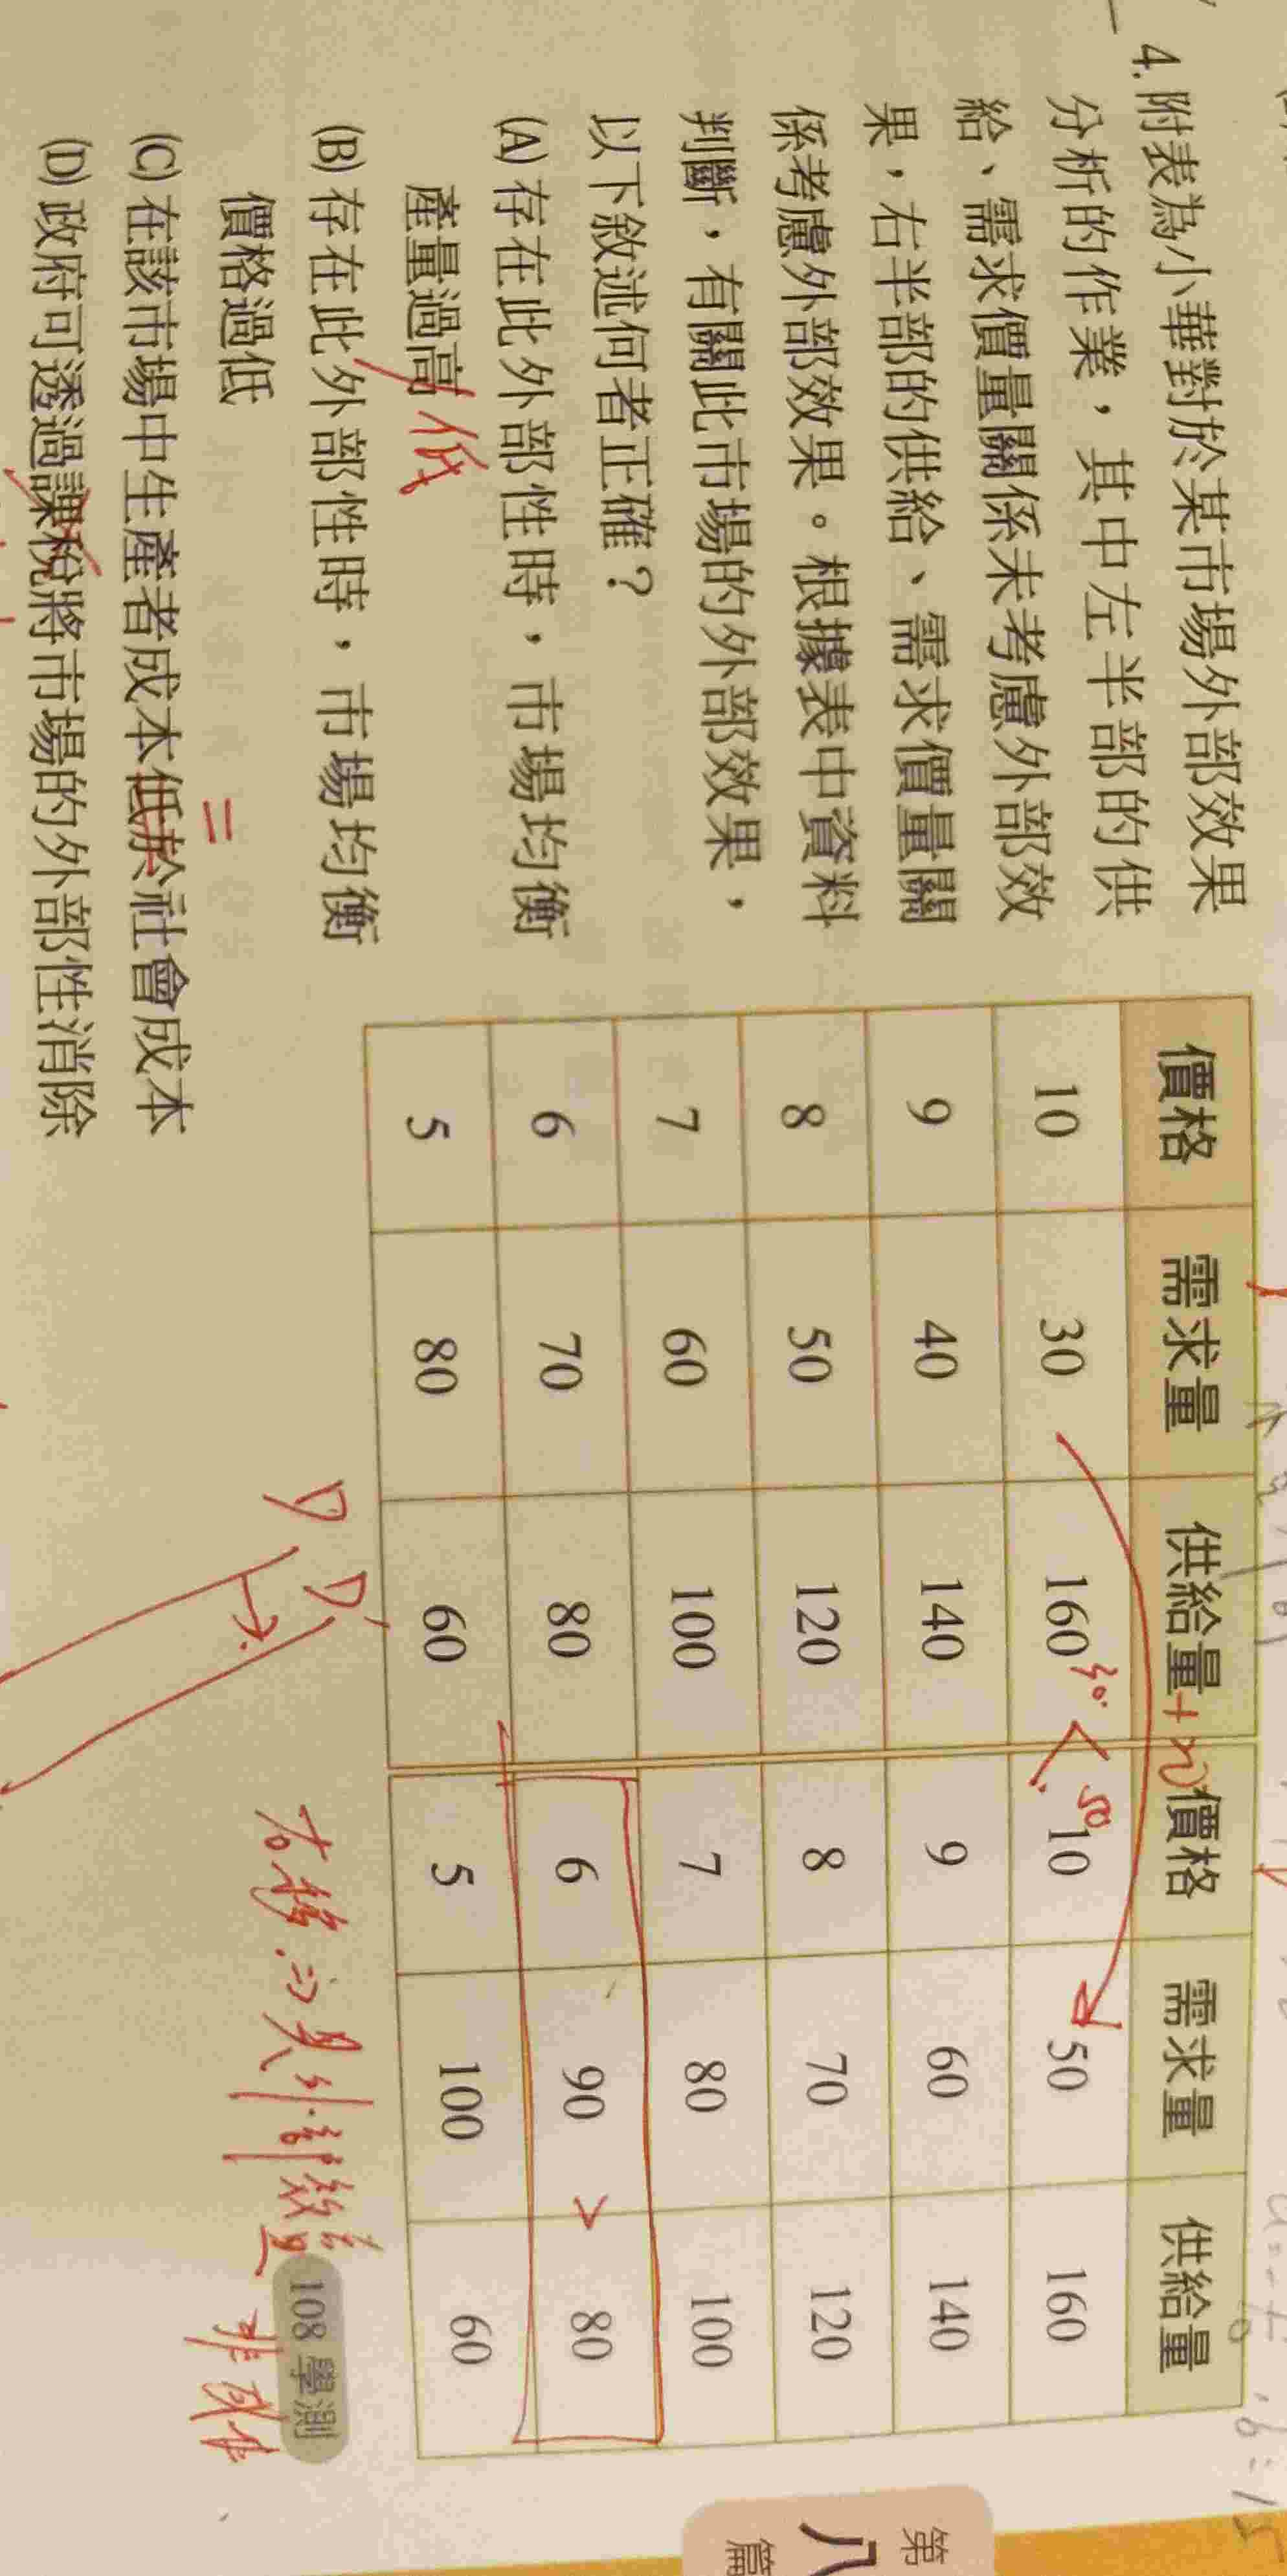 4. 附表為小華對於某市場外部效果
分析的作業，其中左半部的供
給、需求價量關係未考慮外部效
果，右半部的供給、需求價量關
係考慮外部效果。根據表中資料
判斷，有關此市場的外部效果，
以下敘述何者正確？
(A) 存在此外部性時，市場均衡
產量過高 低
(B) 存在此外部性時，市場均衡
價格過低
(C) 在該市場中生產者成本低於社會成本
=
(D) 政府可透過課稅將市場的外部性消除
價格 需求量 供給量 價格 需求量 供給量
10 30 160 10 50 160
9 40 140 9 60 140
8 50 120 8 70 120
7 60 100 7 80 100
6 70 80 6 90 > 80
5 80 60 5 100 60
30 < 50
D D'
右移 => 具外部效益
108 學測
非成本
第
八
篇